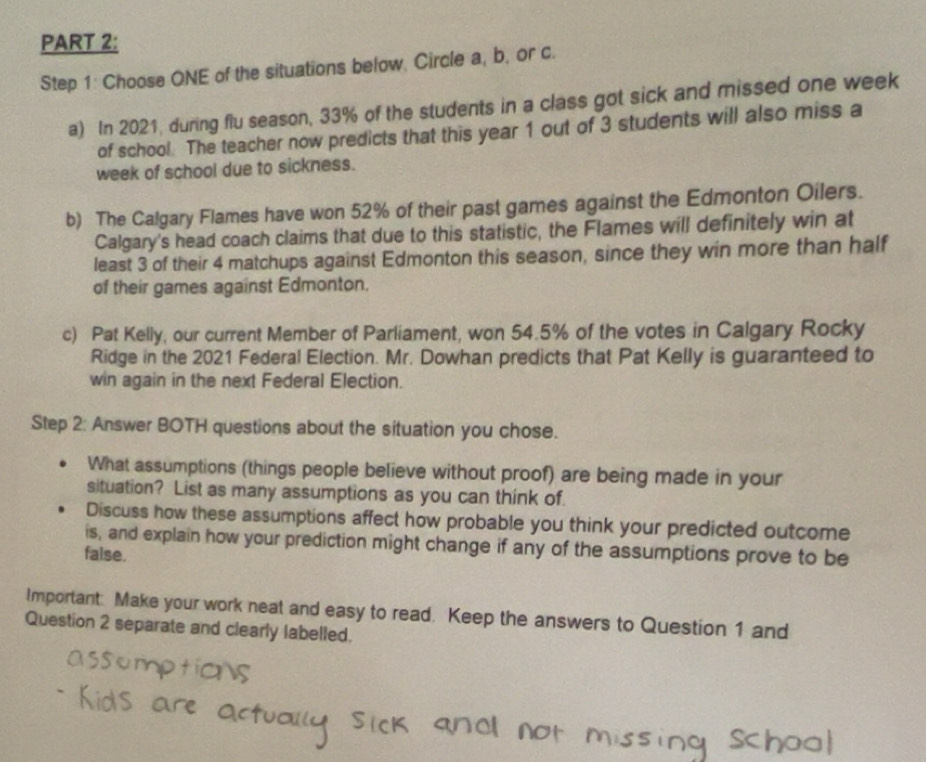 PART 2:
Step 1: Choose ONE of the situations below. Circle a, b, or c.
a) In 2021, during flu season, 33% of the students in a class got sick and missed one week
of school. The teacher now predicts that this year 1 out of 3 students will also miss a
week of school due to sickness.
b) The Calgary Flames have won 52% of their past games against the Edmonton Oilers.
Calgary's head coach claims that due to this statistic, the Flames will definitely win at
least 3 of their 4 matchups against Edmonton this season, since they win more than half
of their games against Edmonton.
c) Pat Kelly, our current Member of Parliament, won 54.5% of the votes in Calgary Rocky
Ridge in the 2021 Federal Election. Mr. Dowhan predicts that Pat Kelly is guaranteed to
win again in the next Federal Election.
Step 2: Answer BOTH questions about the situation you chose.
• What assumptions (things people believe without proof) are being made in your
situation? List as many assumptions as you can think of.
• Discuss how these assumptions affect how probable you think your predicted outcome
is, and explain how your prediction might change if any of the assumptions prove to be
false.
Important: Make your work neat and easy to read. Keep the answers to Question 1 and
Question 2 separate and clearly labelled.
assumptions
- Kids are actually sick and not missing school